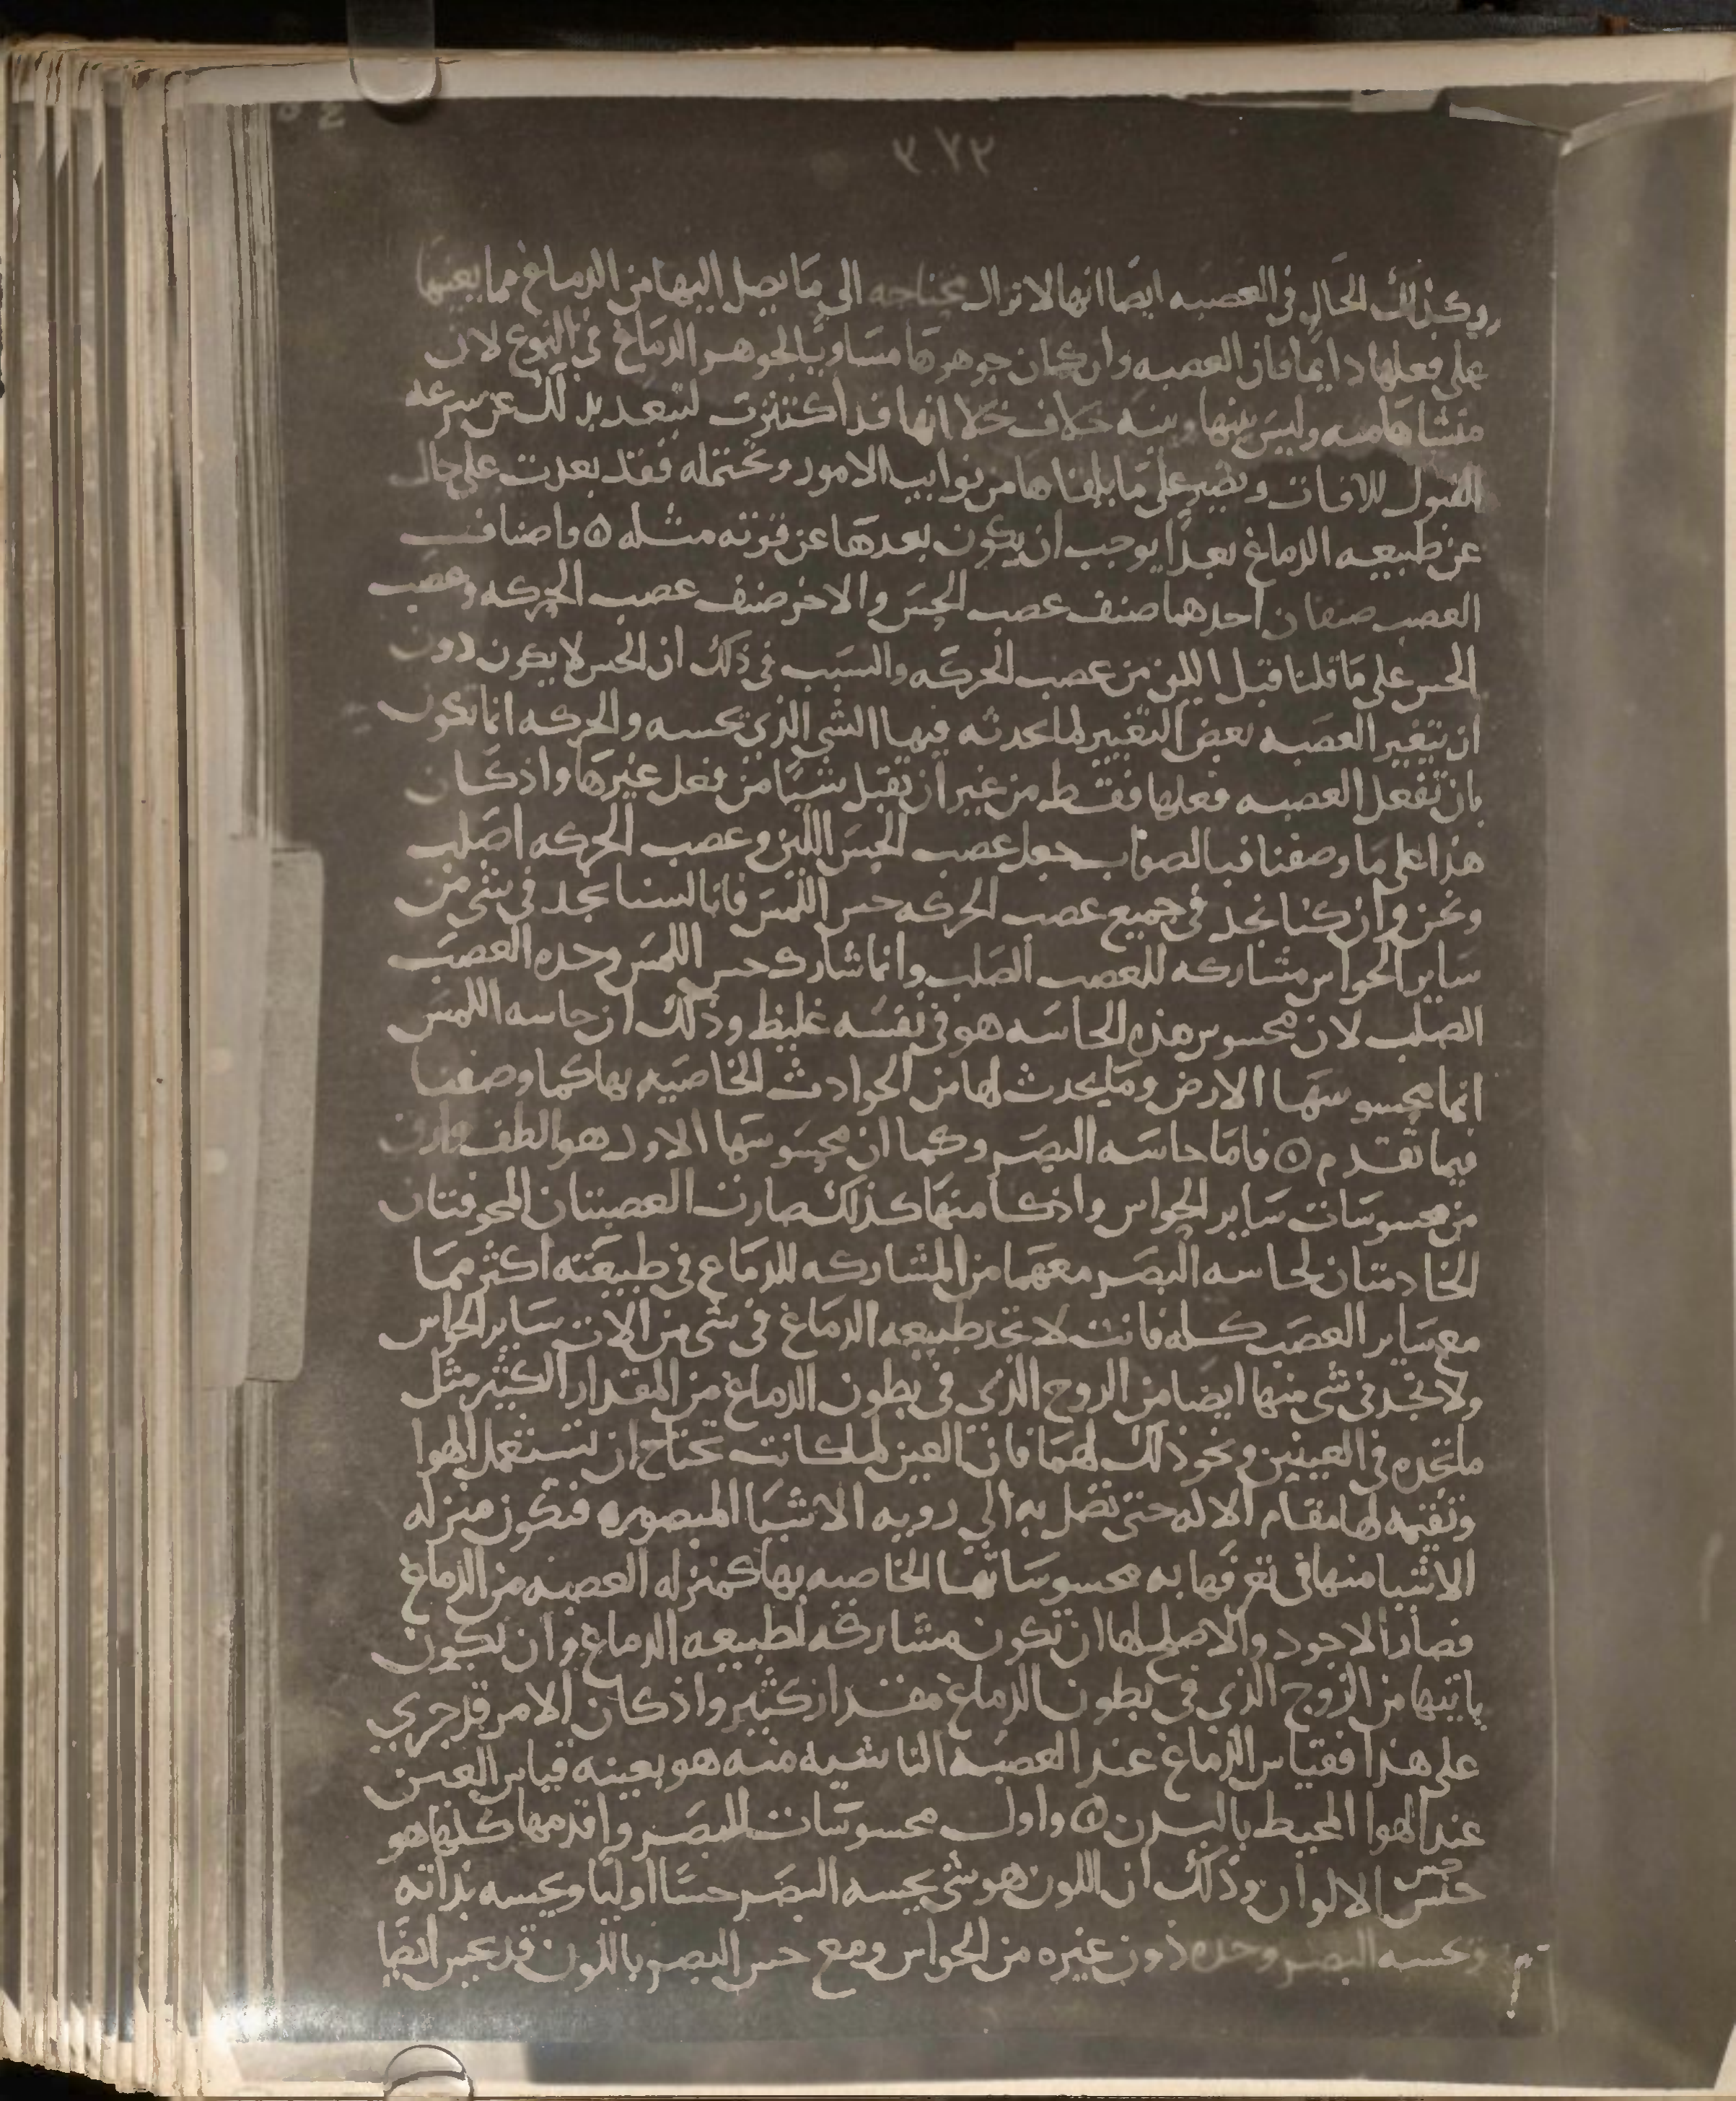 ٣٧٢
وكذلك الحال في العصبه ايضا انها لا تزال محتاجه الى ما يصل اليها من الدماغ مما يعينها
على فعلها دايما فان العصبه وان كان جوهرها مساويا لجوهر الدماغ في النوع لان
منشاها منه وليس بينها وبينه خلاف خلا انها قد اكتنزت لتبعد بذلك عن سرعه
القبول للافات وتصبر على ما يلقاها من نوايب الامور وتحتمله فقد بعدت على حال
عن طبيعه الدماغ بعدا يوجب ان يكون بعدها عن قوته مثله ۞ واصناف
العصب صنفان احدهما صنف عصب الحس والاخر صنف عصب الحركه وعصب
الحس على ما قلنا قبل اللين من عصب الحركه والسبب في ذلك ان الحس لا يكون دون
ان تتغير العصبه بعض التغيير لما يحدثه فيها الشي الذي تحسه والحركه انما تكون
بان تفعل العصبه فعلها فقط من غير ان تقبل شيا من فعل غيرها واذ كان
هذا على ما وصفنا فبالصواب جعل عصب الحس اللين وعصب الحركه اصلب
ونحن وان كنا نجد في جميع عصب الحركه حس اللمس فانا لسنا نجد في شي من
ساير الحواس مشاركه للعصب الصلب وانما شارك حس اللمس وحده العصب
الصلب لان محسوس هذه الحاسه هو في نفسه غليظ وذلك ان حاسه اللمس
انما محسوسها الارض وما يحدث لها من الحوادث الخاصيه بها كما وصفنا
فيما تقدم ۞ فاما حاسه البصر وكما ان محسوسها الاول هو الطف وارق
من محسوسات ساير الحواس واذكا منها كذلك صارت العصبتان المجوفتان
الخادمتان لحاسه البصر معهما من المشاركه للدماغ في طبيعته اكثر مما
مع ساير العصب كله فانت لا تجد طبيعه الدماغ في شي من الات ساير الحواس
ولا تجد في شي منها ايضا من الروح الذي في بطون الدماغ من المقدار الكثير مثل
ما تجده في العينين ونحو ذلك لهما فان العين لما كانت تحتاج ان تستعمل الهوا
وتقيمه لها مقام الاله حتى تصل به الى رويه الاشيا المبصره فتكون منزله
الاشيا منها في تعرفها به محسوساتها الخاصيه بها كمنزله العصبه من الدماغ
فصار الاجود والاصلح لها ان تكون مشاركه لطبيعه الدماغ وان تكون
ياتيها من الروح الذي في بطون الدماغ مقدار كثير واذ كان الامر قد جرى
على هذا فقياس الدماغ عند العصبه الناشيه منه هو بعينه قياس العين
عند الهوا المحيط بالبدن ۞ واول محسوسات للبصر واقدمها كلها هو
جنس الالوان وذلك ان اللون هو شي يحسه البصر حسا اوليا ويحسه بذاته
ويحسه البصر وحده دون غيره من الحواس ومع حس البصر باللون قد يحس ايضا